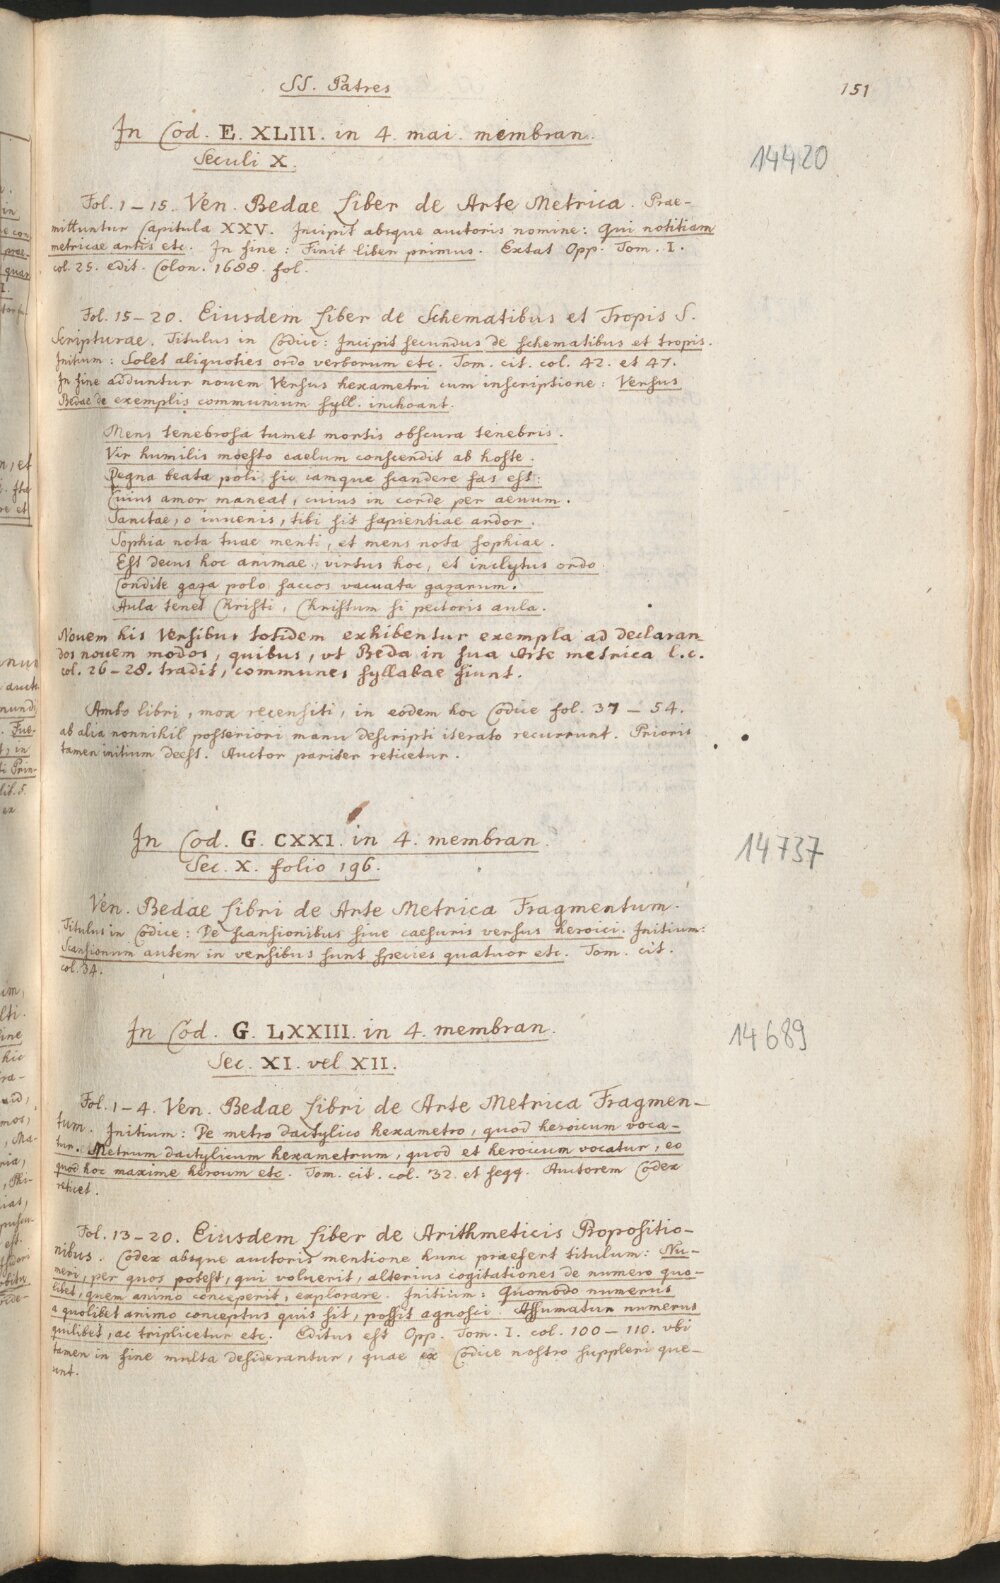 SS. Patres
151
In Cod. E. XLIII. in 4. mai. membran.
Seculi X.
14420
Fol. 1–15. Ven. Bedae Liber de Arte Metrica. Prae-
mittuntur Capitula XXV. Incipit absque auctoris nomine: Qui notitiam
metricae artis etc. In fine: Finit liber primus. Extat Opp. Tom. I.
col. 25. edit. Colon. 1688. fol.
Fol. 15–20. Eiusdem Liber de Schematibus et Tropis S.
Scripturae. Titulus in Codice: Incipit secundus de schematibus et tropis.
Initium: Solet aliquoties ordo verborum etc. Tom. cit. col. 42. et 47.
In fine adduntur novem Versus hexametri cum inscriptione: Versus
Bedae de exemplis communium syll. inchoant.
Mens tenebrosa tumet mortis obscura tenebris.
Vir humilis moesto caelum conscendit ab hoste.
Regna beata poli sic iamque scandere fas est:
Cuius amor maneat, cuius in corde per aevum.
Sanctae, o iuvenis, tibi sit sapientiae ardor.
Sophia nota tuae menti, et mens nota sophiae.
Est decus hoc animae, virtus hoc, et inclytus ordo
Condite gaza polo saccos vacuata gazarum.
Aula tenet Christi, Christum si pectoris aula.
Novem his Versibus totidem exhibentur exempla ad declaran-
dos novem modos, quibus, vt Beda in sua Arte metrica l.c.
col. 26–28. tradit, communes syllabae fiunt.
Ambo libri, mox recensiti, in eodem hoc Codice fol. 37–54.
ab alia nonnihil posteriori manu descripti iterato recurrunt. Prioris
tamen initium deest. Auctor pariter reticetur.
In Cod. G. CXXI. in 4. membran.
Sec. X. folio 196.
14737
Ven. Bedae Libri de Arte Metrica Fragmentum.
Titulus in Codice: De scansionibus sive caesuris versus heroici. Initium:
Scansionum autem in versibus sunt species quatuor etc. Tom. cit.
col. 34.
In Cod. G. LXXIII. in 4. membran.
Sec. XI. vel XII.
14689
Fol. 1–4. Ven. Bedae Libri de Arte Metrica Fragmen-
tum. Initium: De metro dactylico hexametro, quod heroicum voca-
tur. Metrum dactylicum hexametrum, quod et heroicum vocatur, eo
quod hoc maxime heroum etc. Tom. cit. col. 32. et seqq. Auctorem Codex
reticet.
Fol. 13–20. Eiusdem Liber de Arithmeticis Propositio-
nibus. Codex absque auctoris mentione hunc praefert titulum: Nu-
meri, per quos potest, qui voluerit, alterius cogitationes de numero quo-
libet, quem animo conceperit, explorare. Initium: Quomodo numerus
a quolibet animo conceptus quis sit, possit agnosci. Assumatur numerus
quilibet, ac triplicetur etc. Editus est Opp. Tom. I. col. 100–110. vbi
tamen in fine multa desiderantur, quae ex Codice nostro suppleri que-
unt.